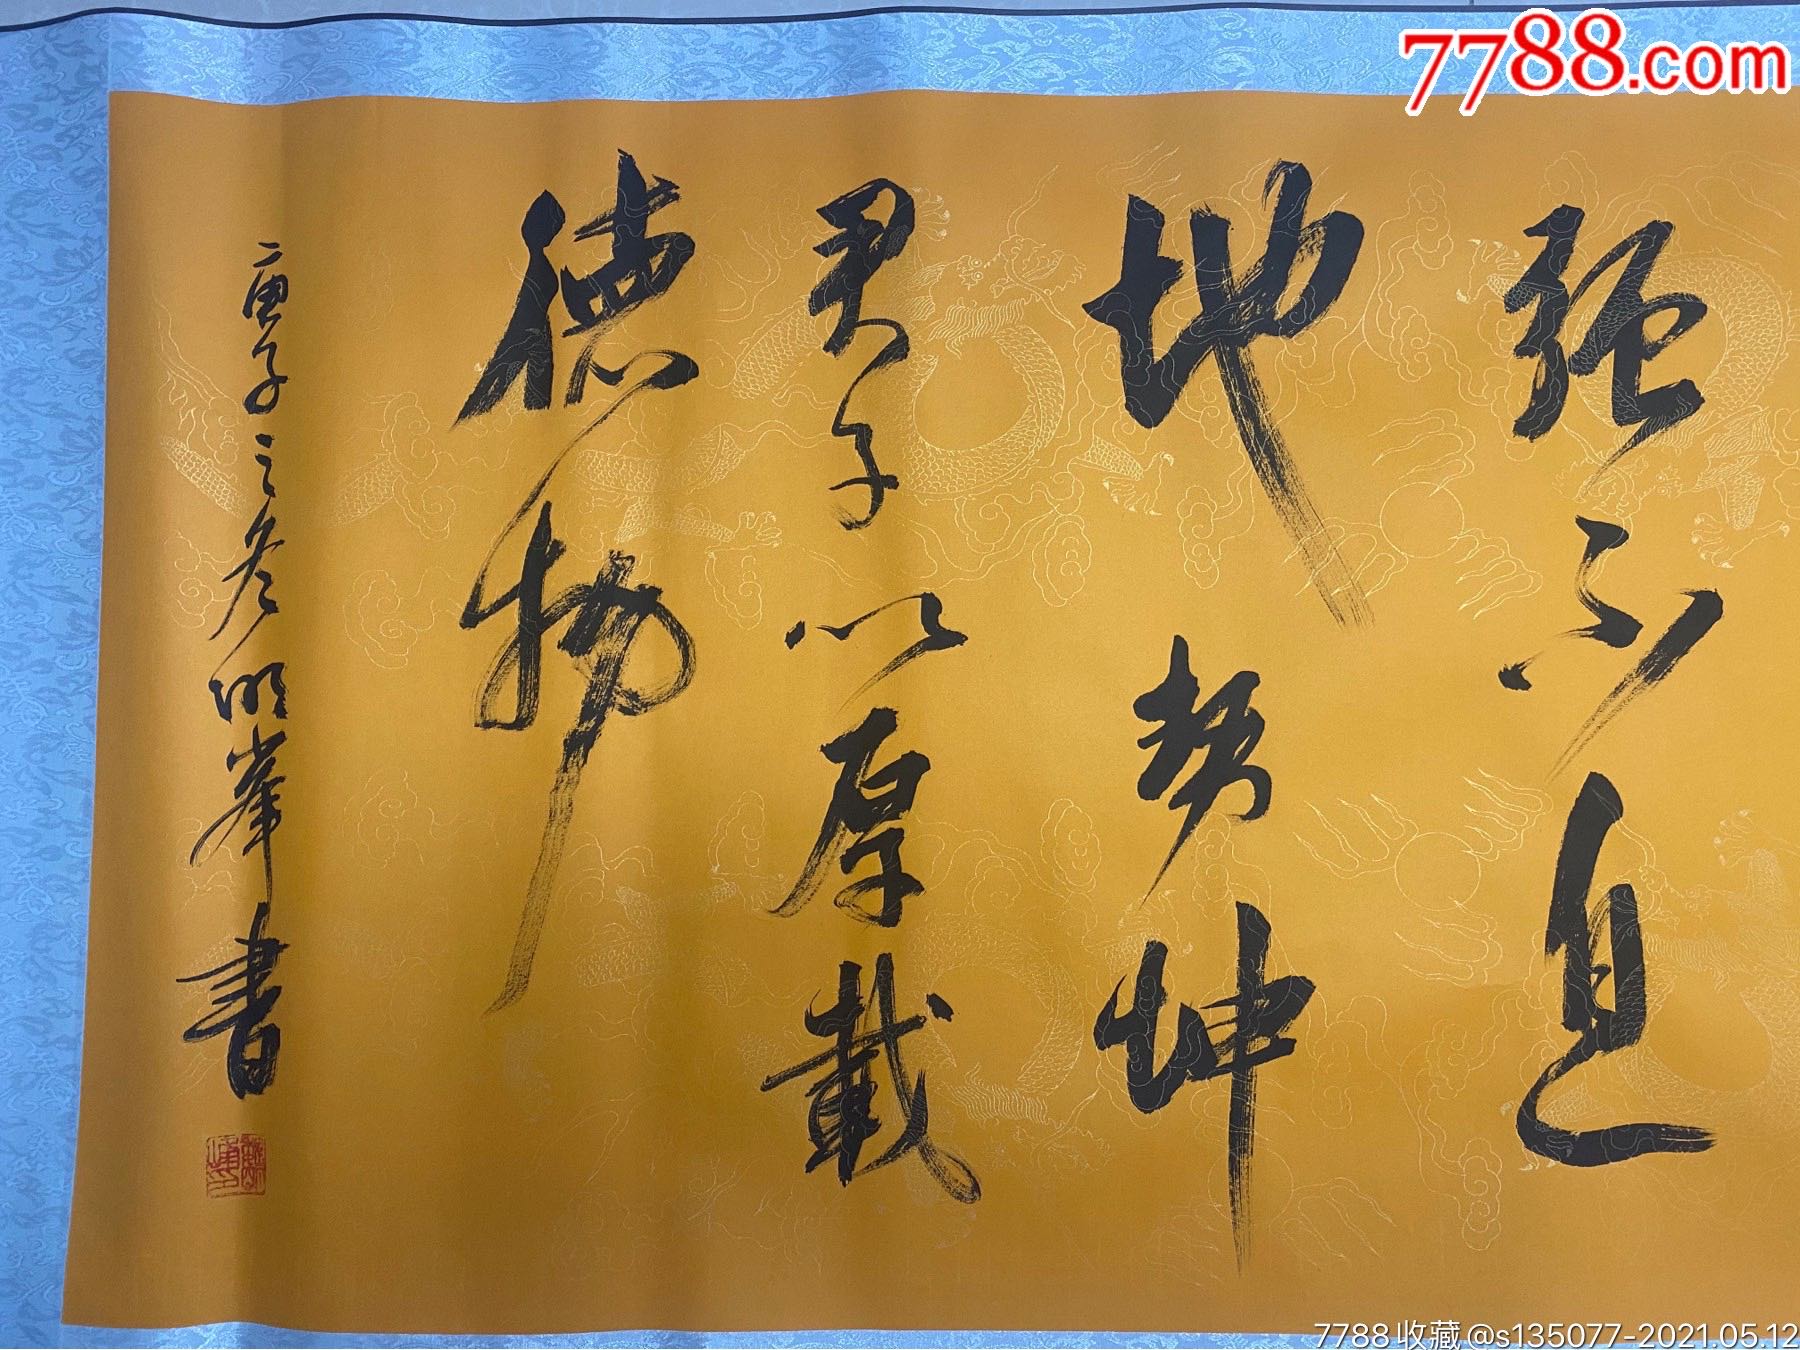 7788.com
强不息
地势坤
君子以厚載
德物
庚子之冬明峯書
7788收藏@s135077-2021.05.12